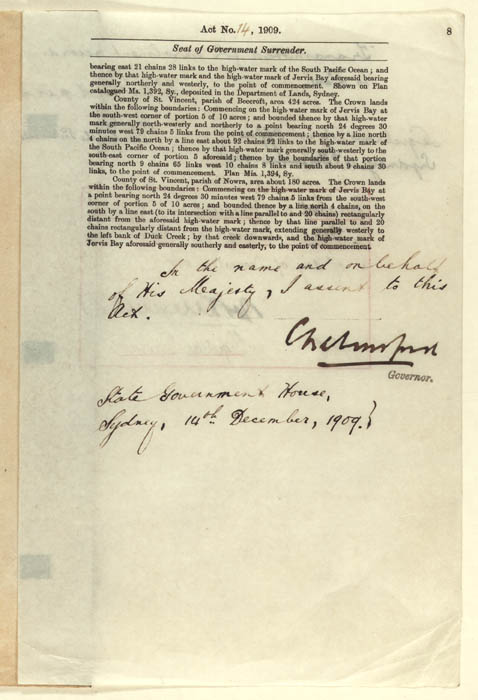 Act No. 14, 1909.
8
Seat of Government Surrender.
bearing east 21 chains 28 links to the high-water mark of the South Pacific Ocean ; and
thence by that high-water mark and the high-water mark of Jervis Bay aforesaid bearing
generally northerly and westerly, to the point of commencement. Shown on Plan
catalogued Ms. 1,392, Sy., deposited in the Department of Lands, Sydney.
County of St. Vincent, parish of Beecroft, area 424 acres. The Crown lands
within the following boundaries : Commencing on the high-water mark of Jervis Bay at
the south-west corner of portion 5 of 10 acres ; and bounded thence by that high-water
mark generally north-westerly and northerly to a point bearing north 24 degrees 30
minutes west 79 chains 5 links from the point of commencement ; thence by a line north
4 chains on the north by a line east about 92 chains 92 links to the high-water mark of
the South Pacific Ocean ; thence by that high-water mark generally south-westerly to the
south-east corner of portion 5 aforesaid ; thence by the boundaries of that portion
bearing north 9 chains 65 links west 10 chains 8 links and south 9 chains 30
links, to the point of commencement. Plan Ms. 1,394, Sy.
County of St. Vincent, parish of Nowra, area about 180 acres. The Crown lands
within the following boundaries : Commencing on the high-water mark of Jervis Bay at
a point bearing north 24 degrees 30 minutes west 79 chains 5 links from the south-west
corner of portion 5 of 10 acres ; and bounded thence by a line north 4 chains, on the
south by a line east (to its intersection with a line parallel to and 20 chains) rectangularly
distant from the aforesaid high-water mark ; thence by that line parallel to and 20
chains rectangularly distant from the high-water mark, extending generally westerly to
the left bank of Duck Creek ; by that creek downwards, and the high-water mark of
Jervis Bay aforesaid generally southerly and easterly, to the point of commencement.
In the name and on behalf
of His Majesty, I assent to this
Act.
Chelmsford
Governor.
State Government House,
Sydney, 14th December, 1909.}